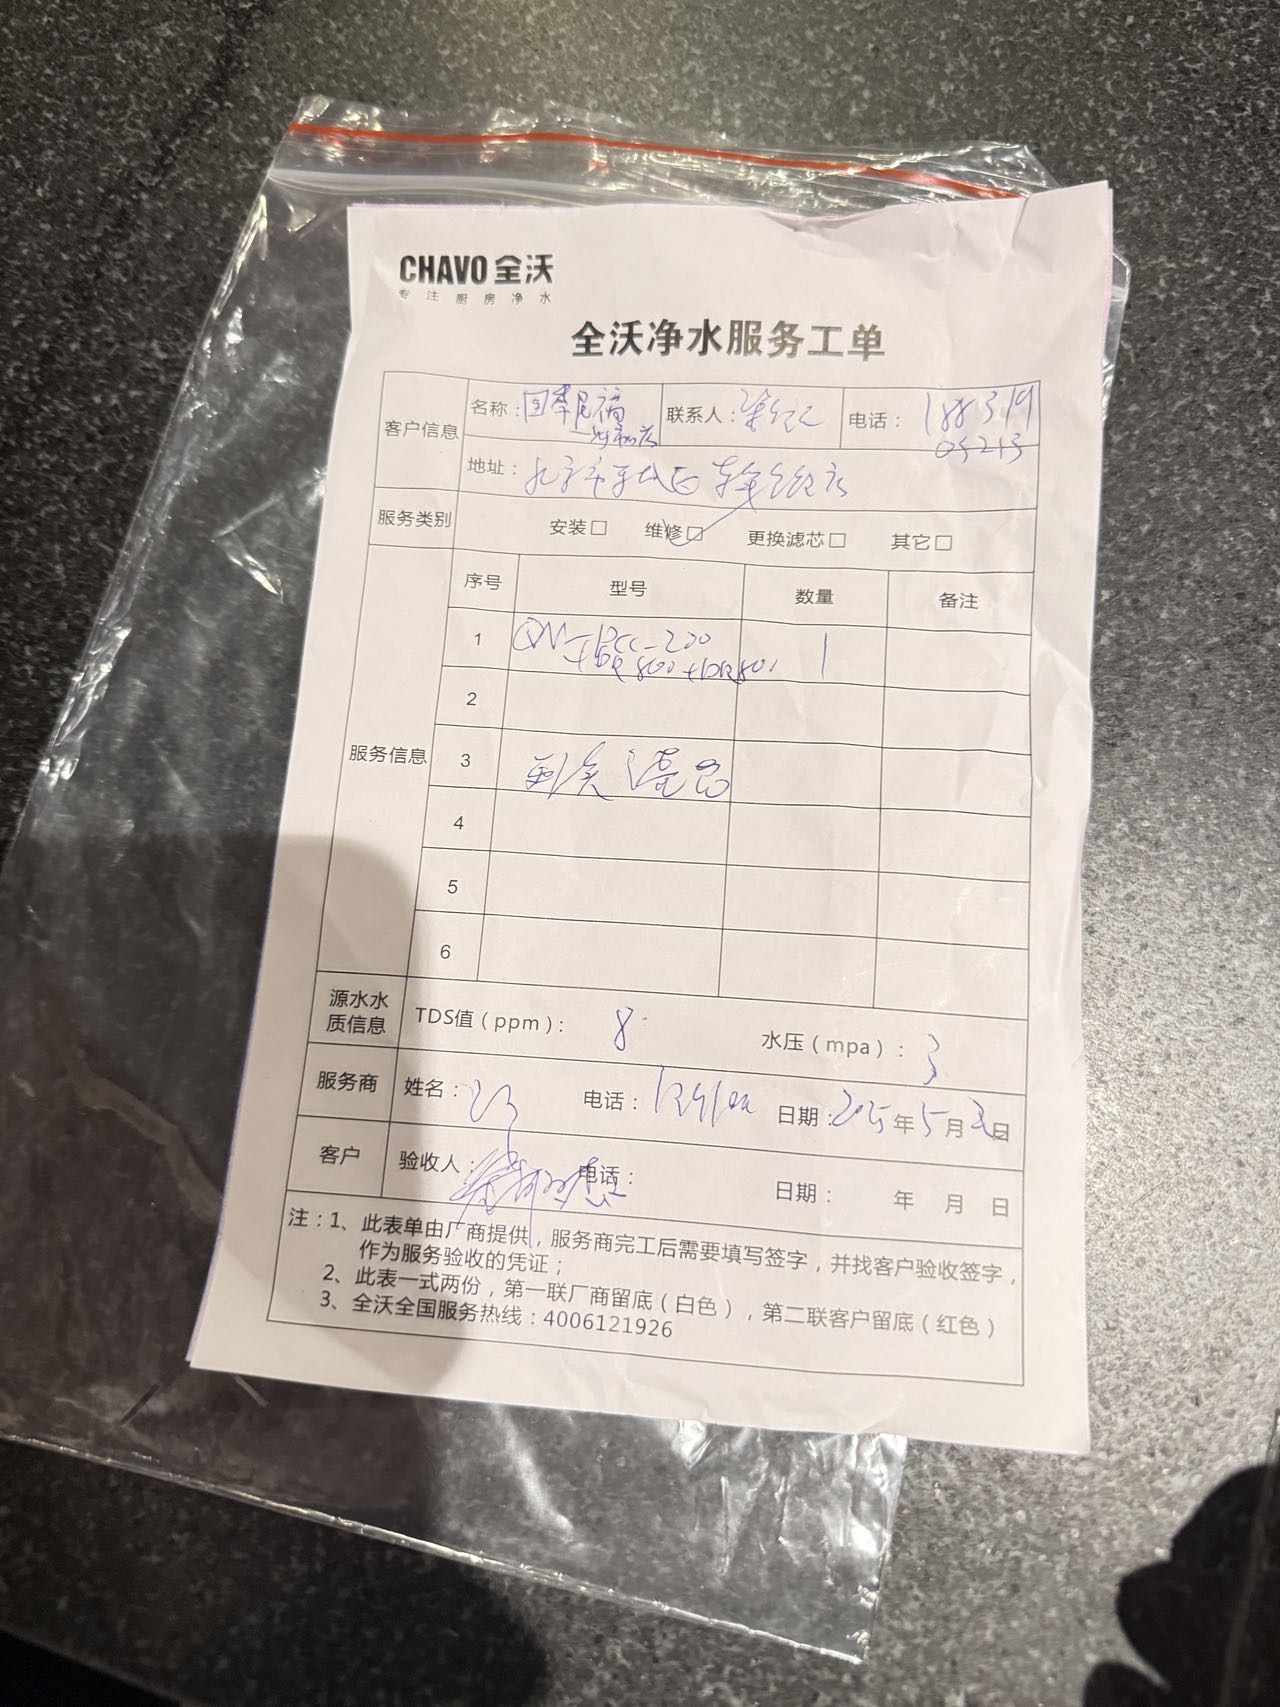 CHAVO 全沃
专注厨房净水
全沃净水服务工单
客户信息
名称：
联系人：
电话：188319
05213
地址：
服务类别
安装□ 维修□ 更换滤芯□ 其它□
服务信息
序号 型号 数量 备注
1 1
2
3 更换滤芯
4
5
6
源水水质信息
TDS值（ppm）： 8 水压（mpa）： 3
服务商 姓名： 电话： 日期：2025年5月 日
客户 验收人： 电话： 日期： 年 月 日
注：1、此表单由厂商提供，服务商完工后需要填写签字，并找客户验收签字，
作为服务验收的凭证；
2、此表一式两份，第一联厂商留底（白色），第二联客户留底（红色）
3、全沃全国服务热线：4006121926